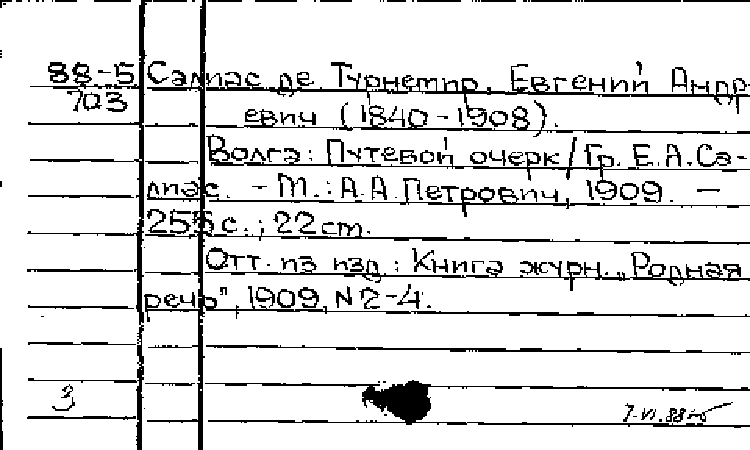 88-5 Салиас де Турнемир, Евгений Андр-
703 евич (1840-1908).
Волга: Путевой очерк / Гр. Е.А. Са-
лиас. - М.: А.А. Петрович, 1909. -
255 с.; 22 cm.
Отт. из изд.: Книга журн. „Родная
речь", 1909, N 2-4.
3